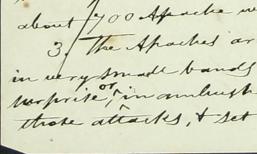 about 700 Apache w
3. The Apaches ar
in very small bands
surprise or in ambush
those attacks, & set